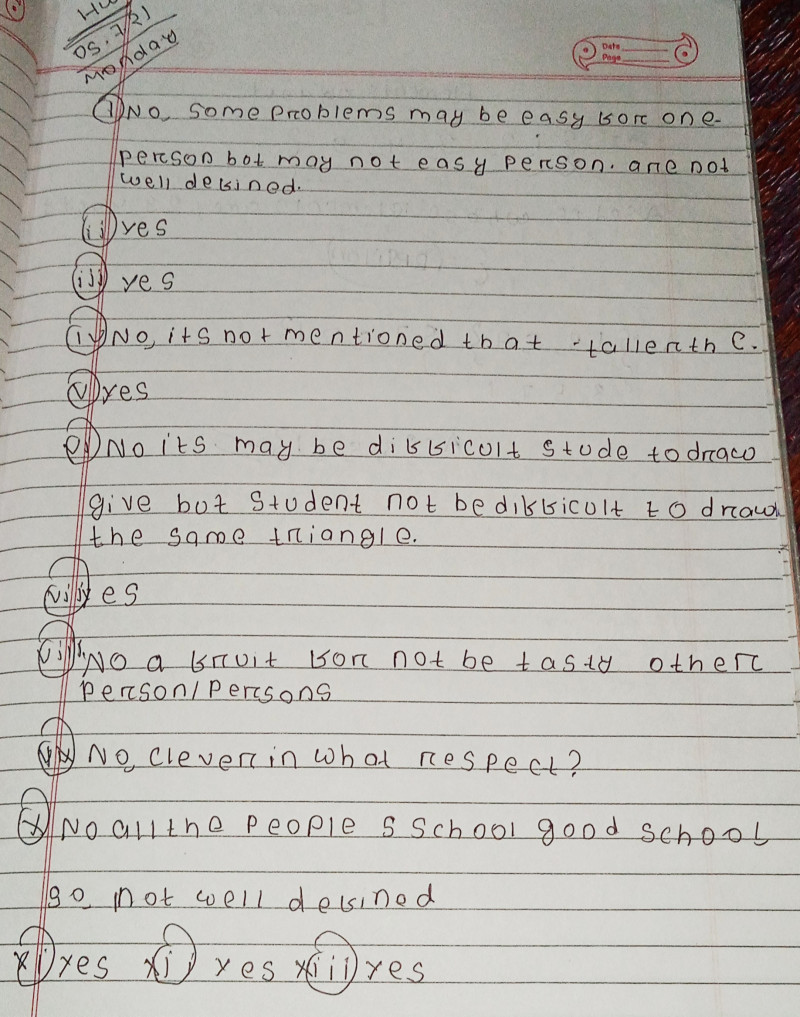 HW
05.7/21
Monday
Date
Page
(i) No, some problems may be easy for one
person bot may not easy person. are not
well defined.
(ii) yes
(iii) yes
(iv) No, its not mentioned that taller the.
(v) yes
(vi) No its may be difficult stude to draw
give but student not be difficult to draw
the same triangle.
(vii) yes
(viii) No a fruit for not be tasty other
person/persons
(ix) No, clever in what respect?
(x) No all the people s school good school
so, not well defined
(xi) yes (xii) yes (xiii) yes